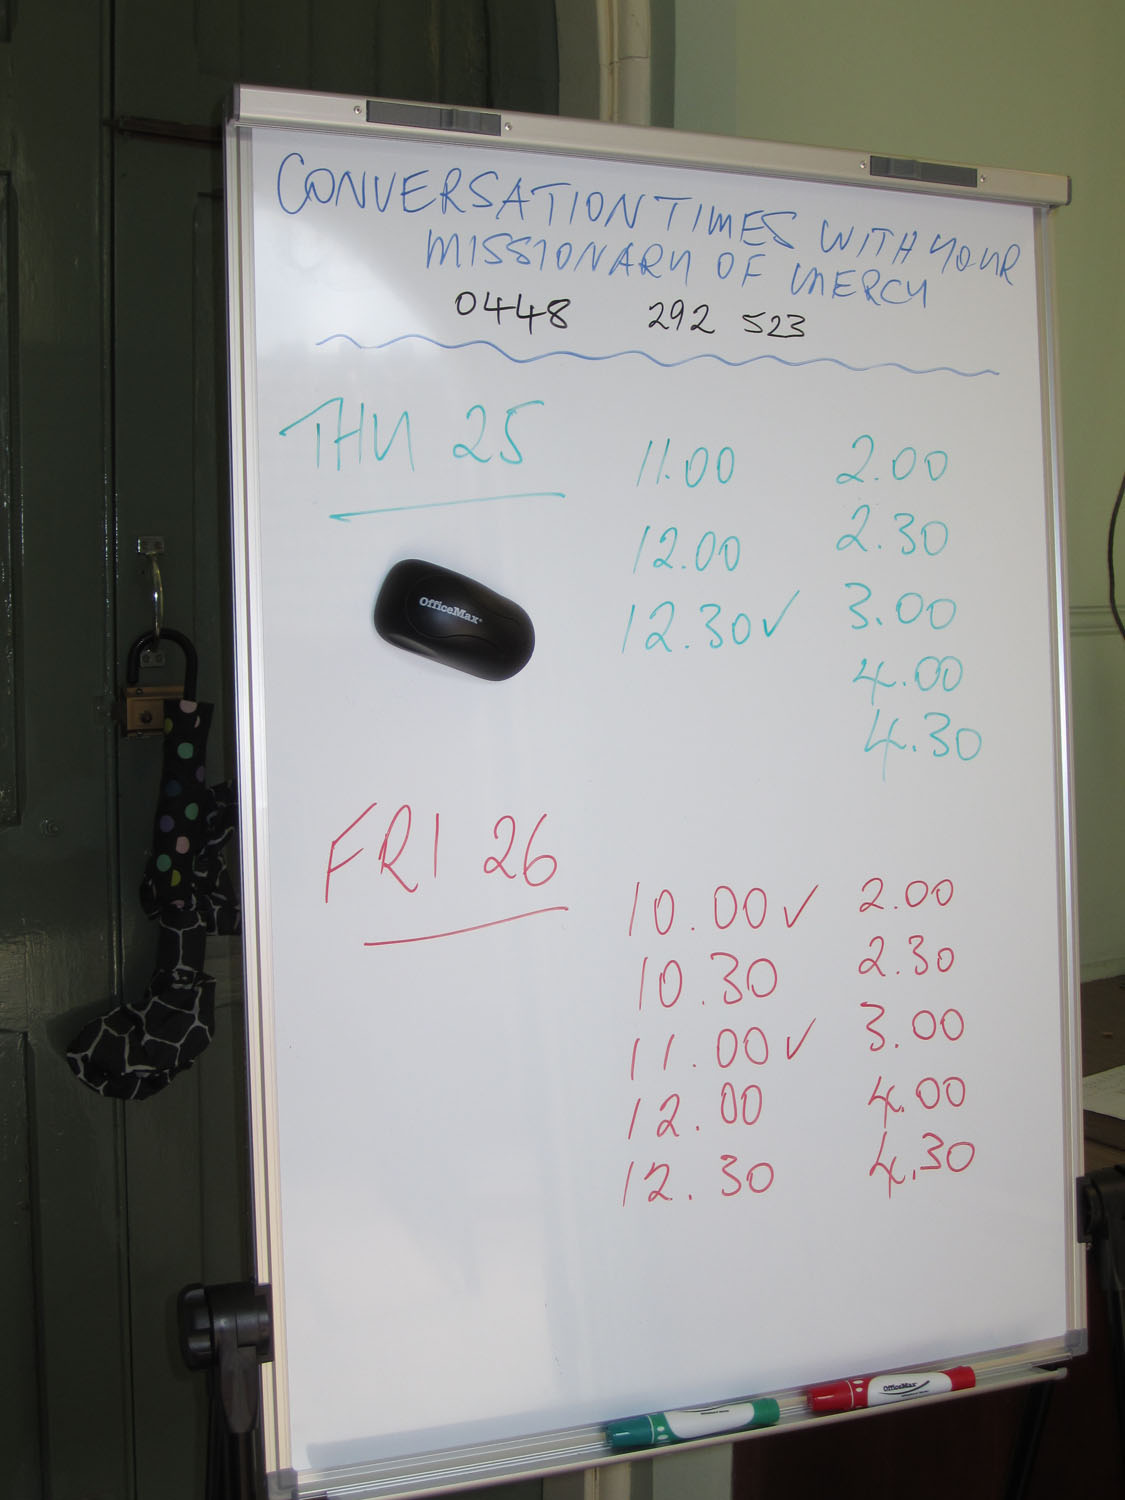 CONVERSATION TIMES WITH YOUR
MISSIONARY OF MERCY
0448 292 523
THU 25
11.00 2.00
12.00 2.30
12.30 ✓ 3.00
4.00
4.30
OfficeMax
FRI 26
10.00 ✓ 2.00
10.30 2.30
11.00 ✓ 3.00
12.00 4.00
12.30 4.30
OfficeMax